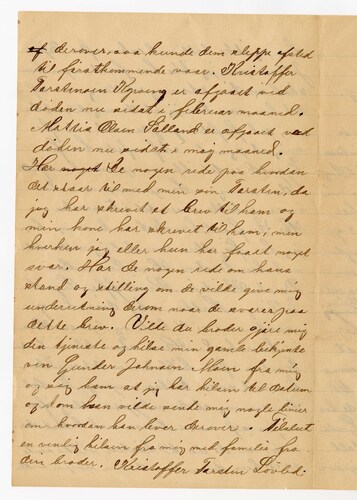 af derover, saa kunde dem slippe afsted
til förstkommende vaar. Kristoffer
Torstensen er afgaaet ved
döden nu sidst i februar maaned.
Mattis Olsen Sölland er afgaaet ved
döden nu sidst i maj maaned.
Har noget De nogen rede paa hvordan
det staar til med min sön Torsten, da
jeg har skrevet et brev til ham og
min kone har skrevet til ham, men
hverken jeg eller hun har faaet noget
svar. Har de nogen rede om hans
stand og stilling om de vilde give mig
underretning derom naar de svarer paa
dette brev. Vilde du broder gjöre mig
den tjeneste og hilse min gamle bekjente
ven Gunder Johnsen Moen fra mig
og sig ham at jeg har hilsen til
og om han vilde sende mig nogle linier
om hvordan han lever derover. Tilslut
en venlig hilsen fra mig med familie fra
din broder. Kristoffer Torsten